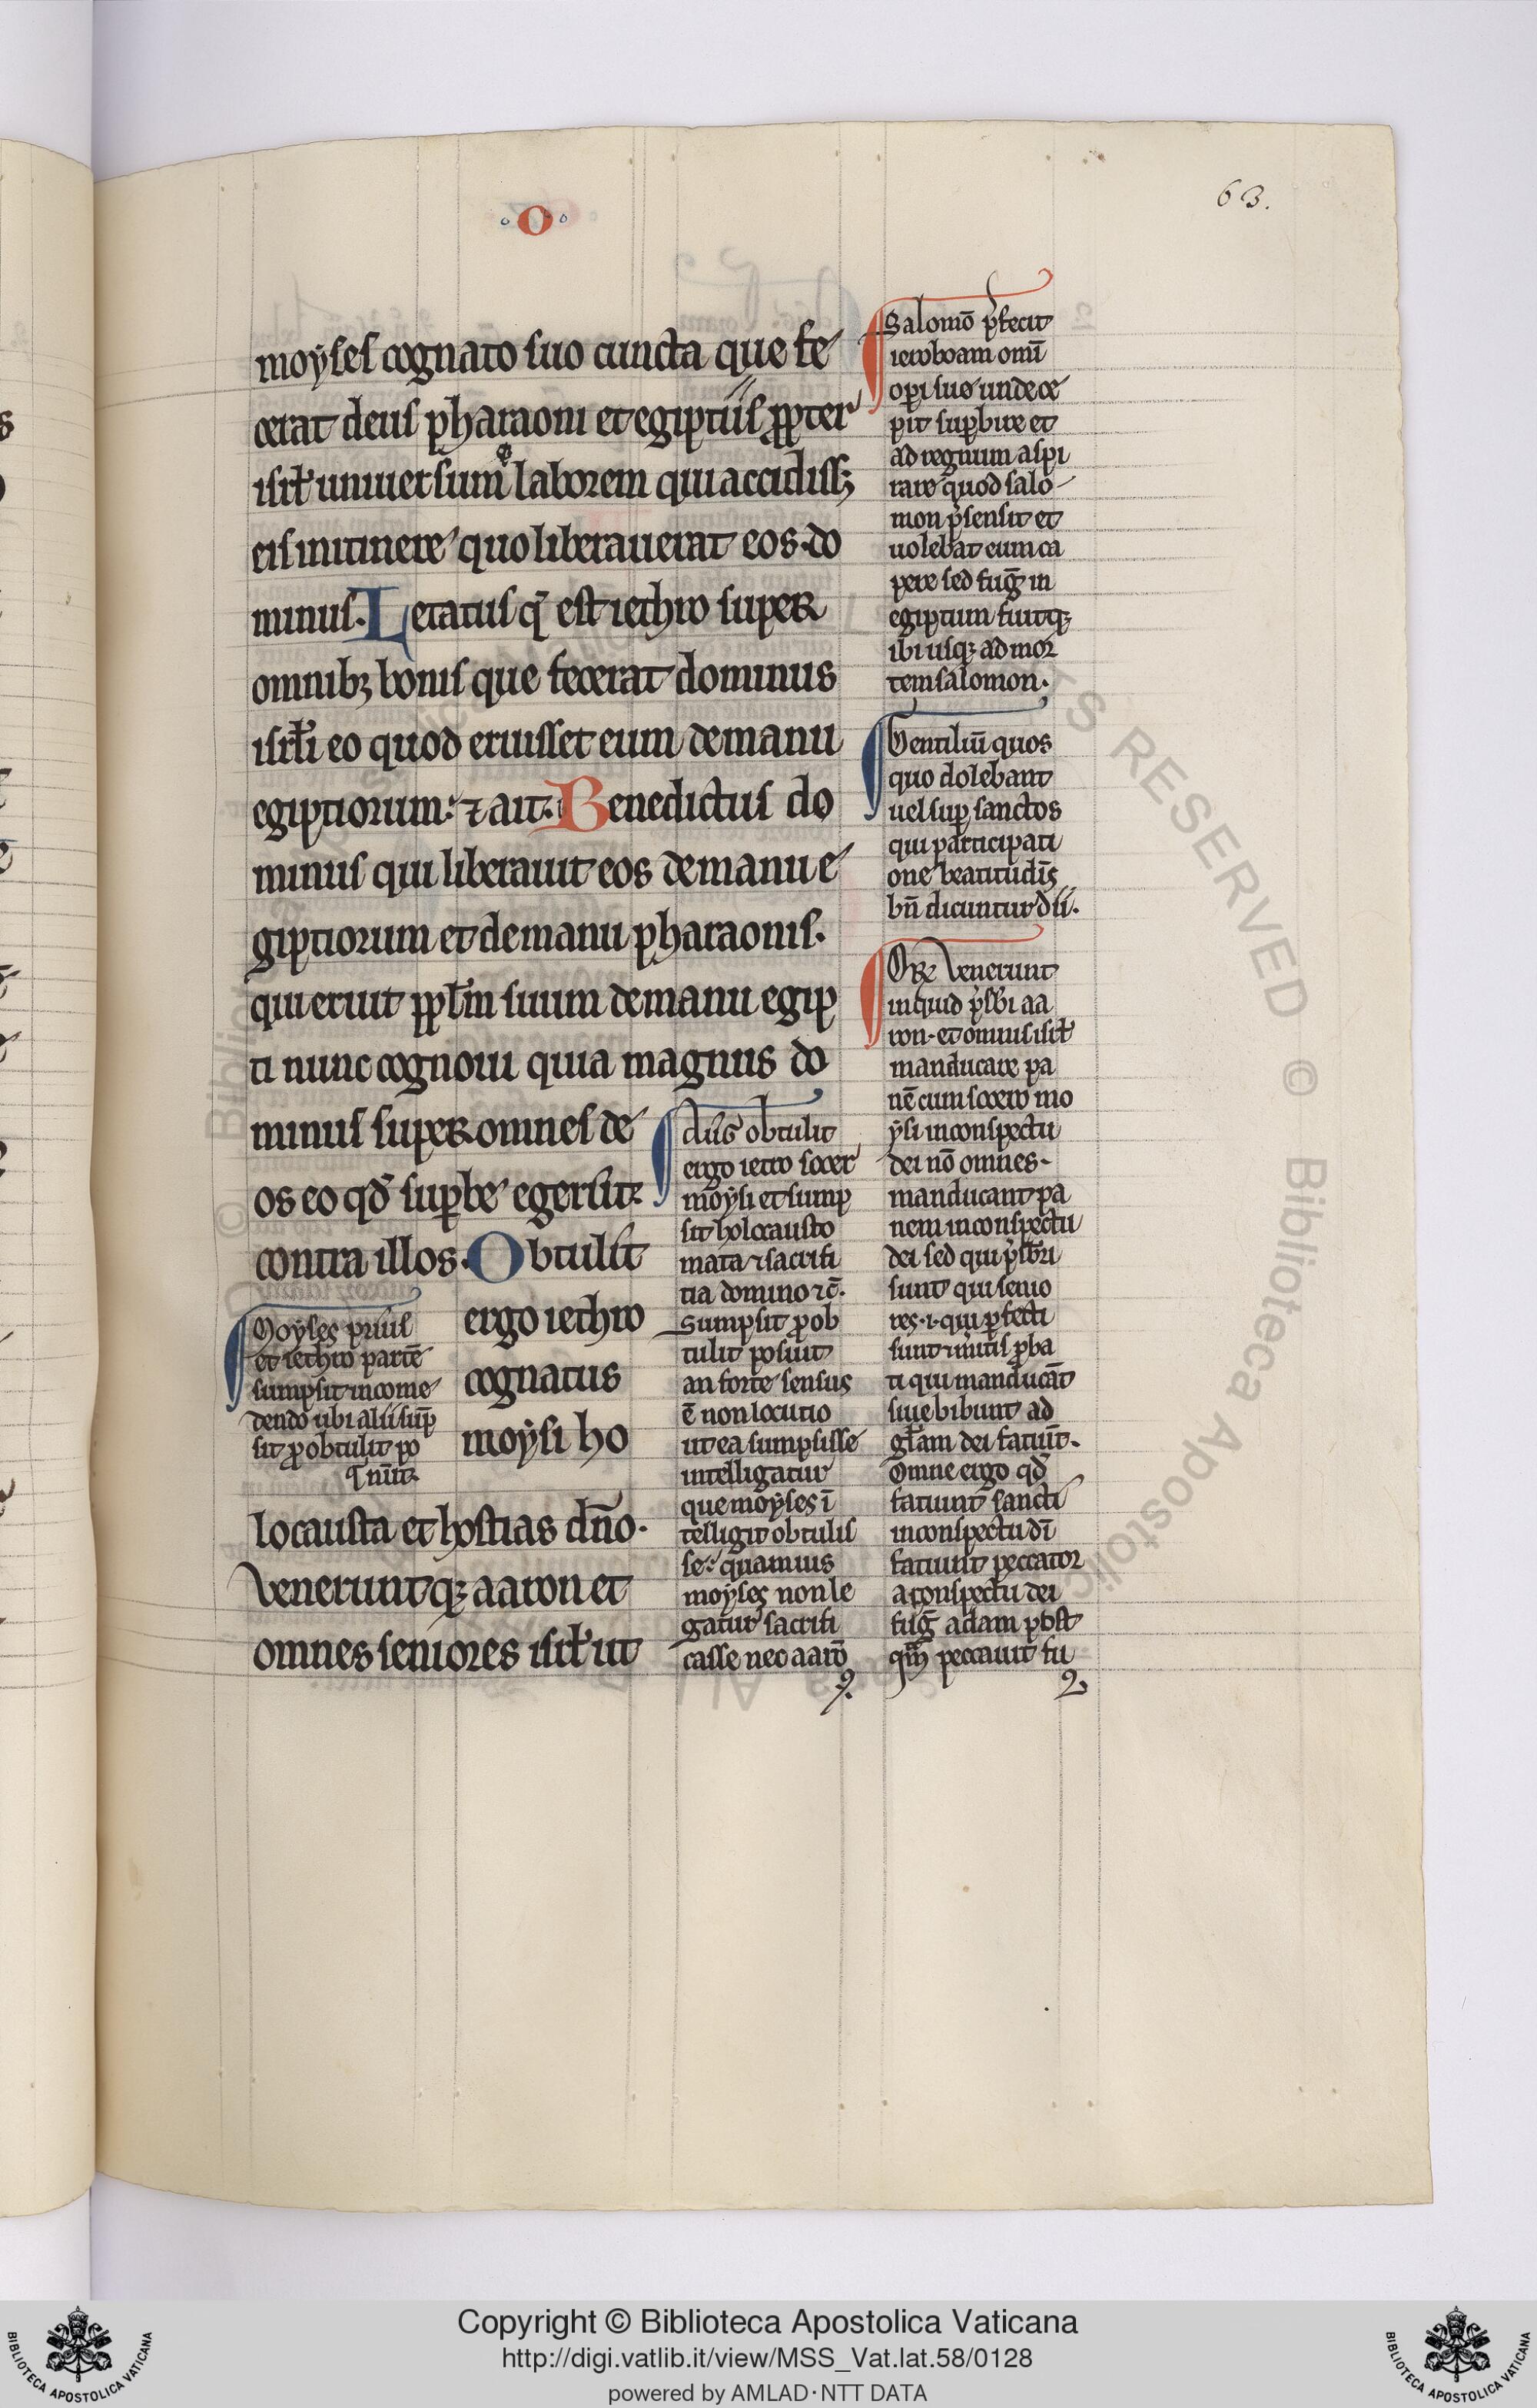 63.
O
moyses cognato suo cuncta que fe
cerat deus pharaoni et egiptiis ꝓpter
isrł uniuersum laborem qui accidissꝫ
eis in itinere quo liberauerat eos do
minus. Letatus q̄ est iethro super
omnibꝫ bonis que fecerat dominus
isrłi eo quod eruisset eum de manu
egiptiorum: ⁊ ait. Benedictus do
minus qui liberauit eos de manu e
giptiorum et de manu pharaonis.
qui eruit ppłm suum de manu egip
ti nunc cognoui quia magnus do
minus super omnes de
os eo qđ suꝑbe egerīt
contra illos. Obtulit
ergo iethro
cognatus
moysi ho
locausta et hostias dn̄o.
Veneruntqꝫ aaron et
omnes seniores isrł ut
Moyses prius
et iethro partē
sumpsit in come
dendo ubi alii sūp
sit ꝓ obtulit po
nūt.
obtulit
ergo ietro socer
moysi et sump
sit holocausto
mata ⁊ sacrifi
tia domino ⁊c̄.
Sumpsit ꝓ ob
tulit posuit
an forte sensus
ē non locutio
ut ea sumpsisse
intelligatur
que moyses ī
telligit obtulis
se: quamuis
moyses non le
gatur sacrifi
casse nec aarō
Salomō p̄fecit
ieroboam omī
oꝑi suo unde ce
pit suꝑbire et
ad regnum aspi
rare quod salo
mon p̄sensit et
uolebat eum ca
pere sed fuḡ in
egiptum fuitqꝫ
ibi usqꝫ ad mor
tem salomon.
Gentiliū quos
quo dolebant
uel suꝑ sanctos
qui participati
one beatitudīs
bn̄ dicuntur dii.
Ore Venerunt
inquid p̄sbi aa
ron. et omnis isrł
manducare pa
nē cum socero mo
ysi in conspectu
dei nō omnes
manducant pa
nem in conspectu
dei sed qui p̄sbri
sunt qui senio
res .i. qui ꝑfecti
sunt ⁊ ꝓba
ti qui manducāt
siue bibunt ad
głam dei faciūt.
Omne ergo qđ
faciunt sancti
in conspectu dī
faciunt peccator
a conspectu dei
fuḡ adam post
qm̄ peccauit fu
Copyright © Biblioteca Apostolica Vaticana
http://digi.vatlib.it/view/MSS_Vat.lat.58/0128
powered by AMLAD·NTT DATA
BIBLIOTECA APOSTOLICA VATICANA
BIBLIOTECA APOSTOLICA VATICANA